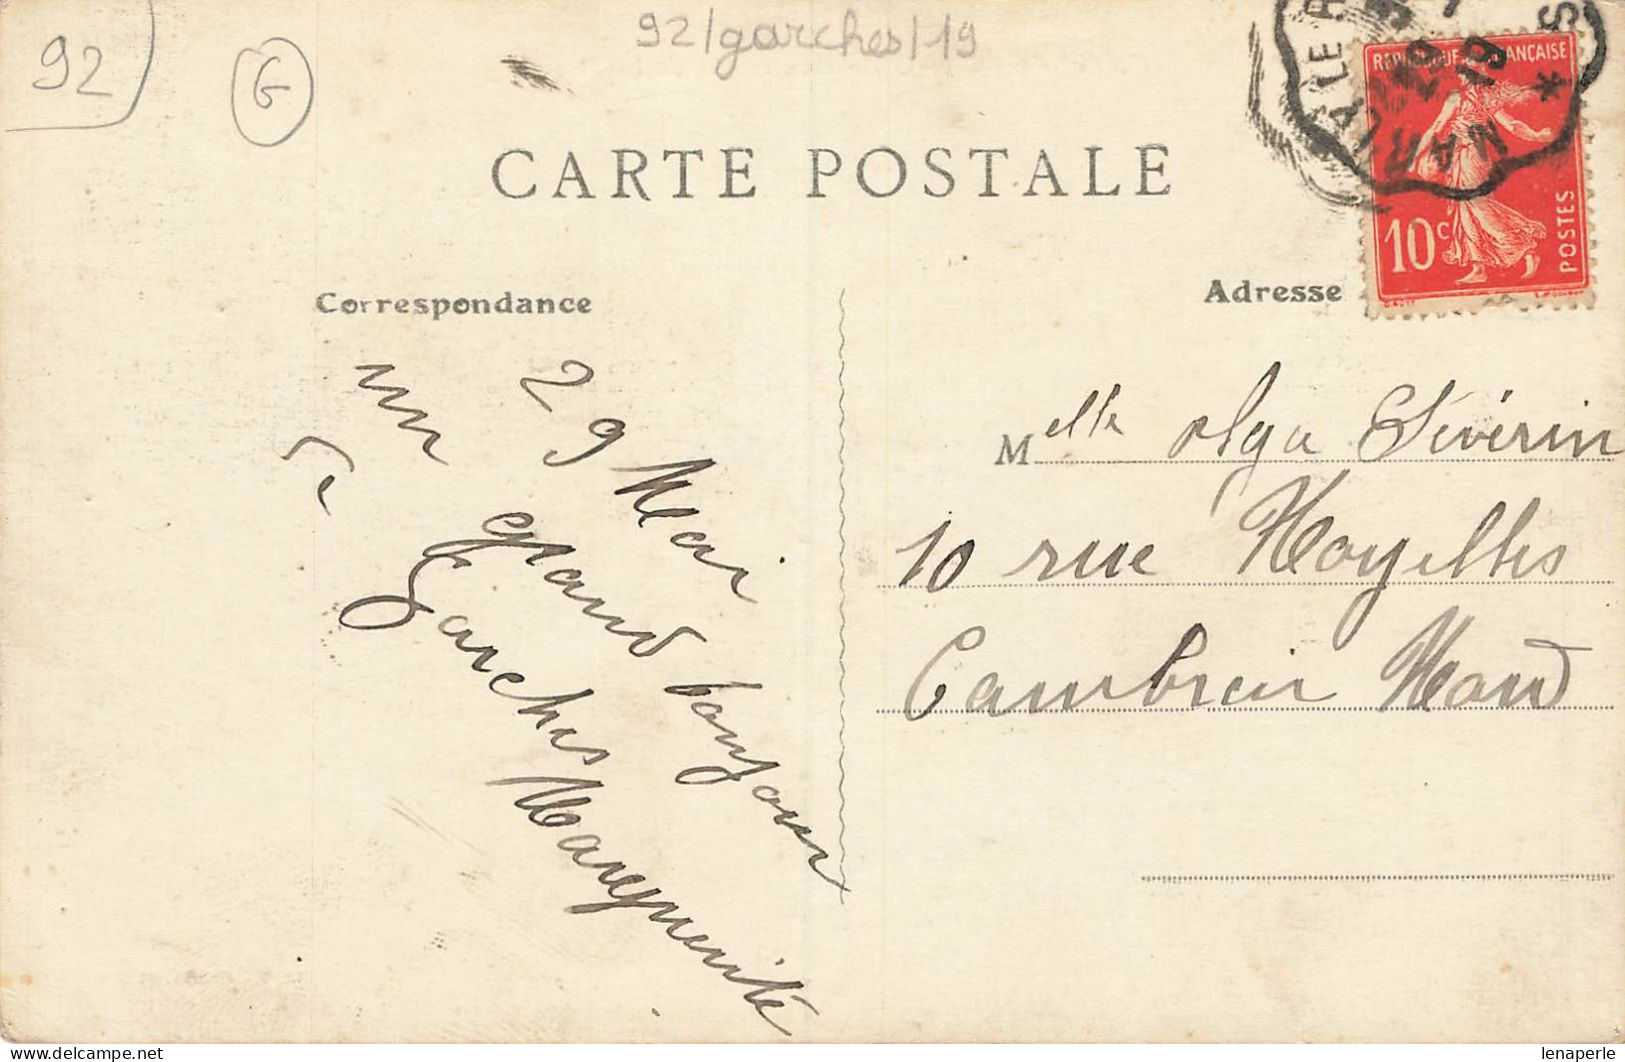 92
G
92/garches/19
CARTE POSTALE
MARLY LE R
29
19
REPUBLIQUE FRANÇAISE
10c
POSTES
Correspondance
Adresse
29 Mai
un grand bonjour
de Garches
Marguerite
Melle Olga Séverin
10 rue Noyelles
Cambrai Nord
lenaperle